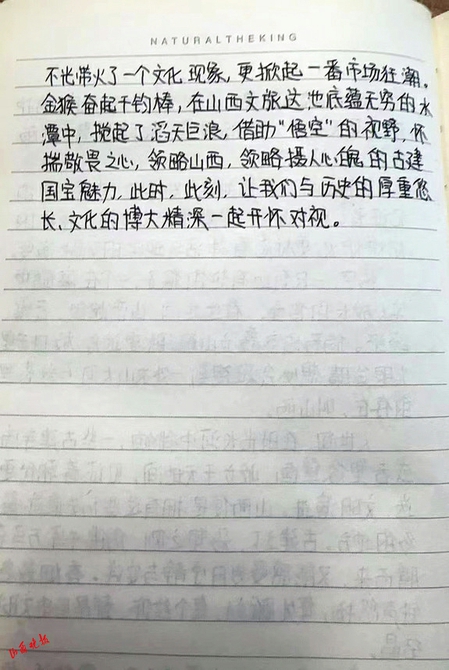 NATURALTHEKING
不光带火了一个文化现象，更掀起一番市场狂潮。
金猴奋起千钧棒，在山西文旅这池底蕴无穷的水
潭中，搅起了滔天巨浪，借助“悟空”的视野，怀
揣敬畏之心，领略山西，领略摄人心魄的古建
国宝魅力，此时，此刻，让我们与历史的厚重悠
长、文化的博大精深一起开怀对视。
山西晚报